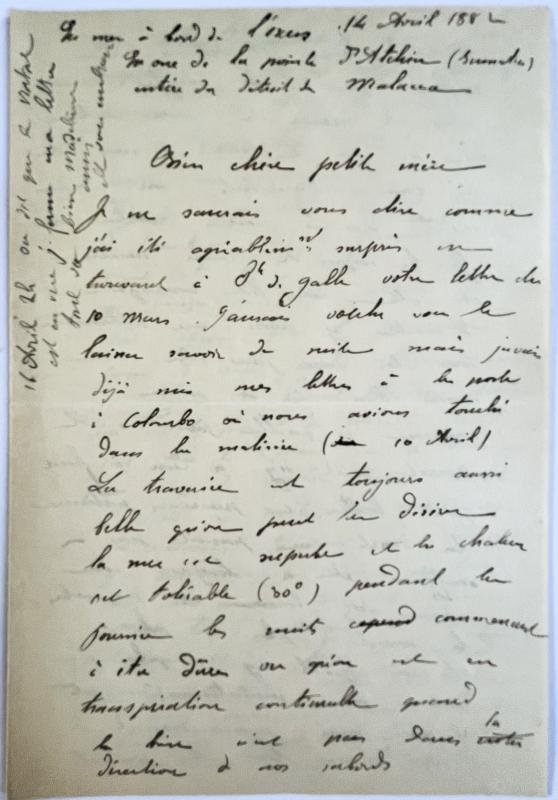 En mer à bord de l'Oxus 14 Avril 188
En vue de la pointe d'Atchin (Sumatra)
entrée du détroit de Malacca
Bien chère petite mère
Je ne saurais vous dire comme
j'ai été agréablement surpris en
trouvant à Pte de Galle votre lettre du
10 Mars. J'aurais voulu vous le
laisser savoir de suite mais j'avais
déjà mis mes lettres à la poste
à Colombo où nous avions touché
dans la matinée (10 Avril)
La traversée est toujours aussi
belle qu'on peut la désirer
la mer est superbe et la chaleur
est tolérable (30°) pendant la
journée les nuits cepend commencent
à être dures vu qu'on est en
transpiration continuelle quand
la brise n'est pas dans la notre
direction de nos sabords
16 Avril 2h on dit que le
est en vue je ferme ma lettre
Tout va bien Madeleine
aussi